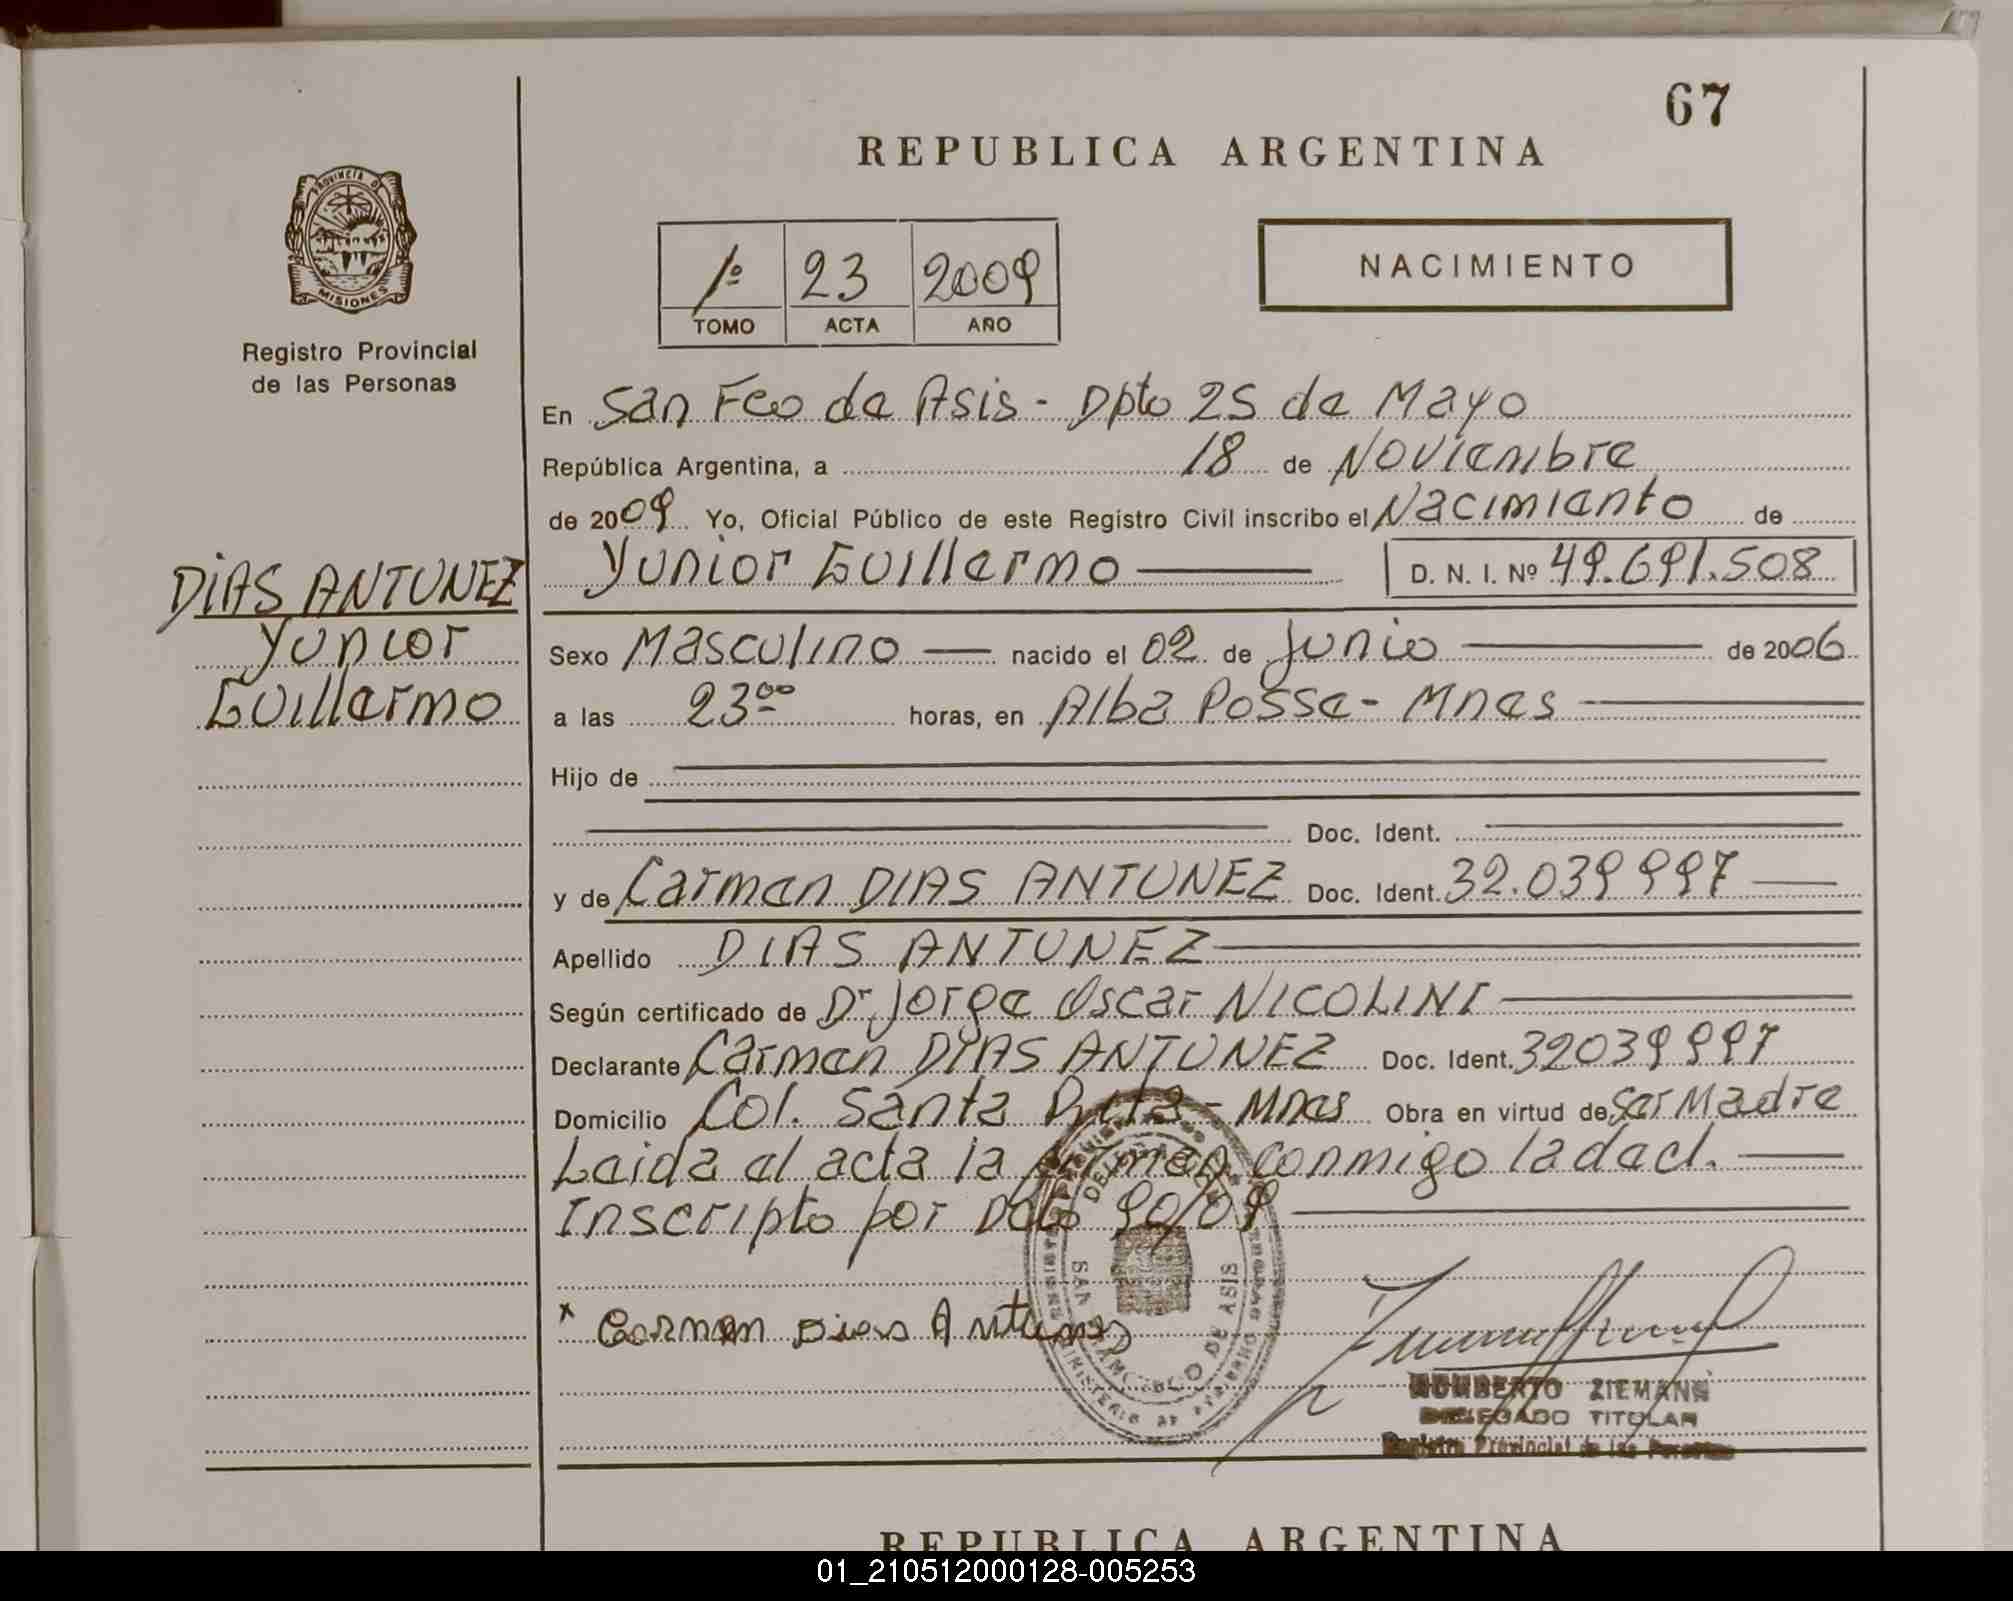 67
REPUBLICA ARGENTINA
PROVINCIA DE
MISIONES
Registro Provincial
de las Personas
1º 23 2009
TOMO ACTA AÑO
NACIMIENTO
En San Fco de Asis - Dpto 25 de Mayo
República Argentina, a 18 de Noviembre
de 2009 Yo, Oficial Público de este Registro Civil inscribo el Nacimiento de
Yunior Guillermo D. N. I. Nº 49.691.508
DIAS ANTUNEZ
Yunior
Guillermo
Sexo Masculino nacido el 02 de Junio de 2006
a las 23°° horas, en Alba Posse - Mnes
Hijo de
Doc. Ident.
y de Carmen DIAS ANTUNEZ Doc. Ident. 32.039997
Apellido DIAS ANTUNEZ
Según certificado de Dr Jorge Oscar NICOLINI
Declarante Carmen DIAS ANTUNEZ Doc. Ident. 32039997
Domicilio Col. Santa Rita - Mnes Obra en virtud de Ser Madre
Leida el acta la firman conmigo la decl.
Inscripto por Dcto 90/09
x Carmen Dias Antunes
SAN FRANCISCO DE ASIS
HUMBERTO ZIEMANN
DELEGADO TITULAR
Registro Provincial de las Personas
REPUBLICA ARGENTINA
01_210512000128-005253